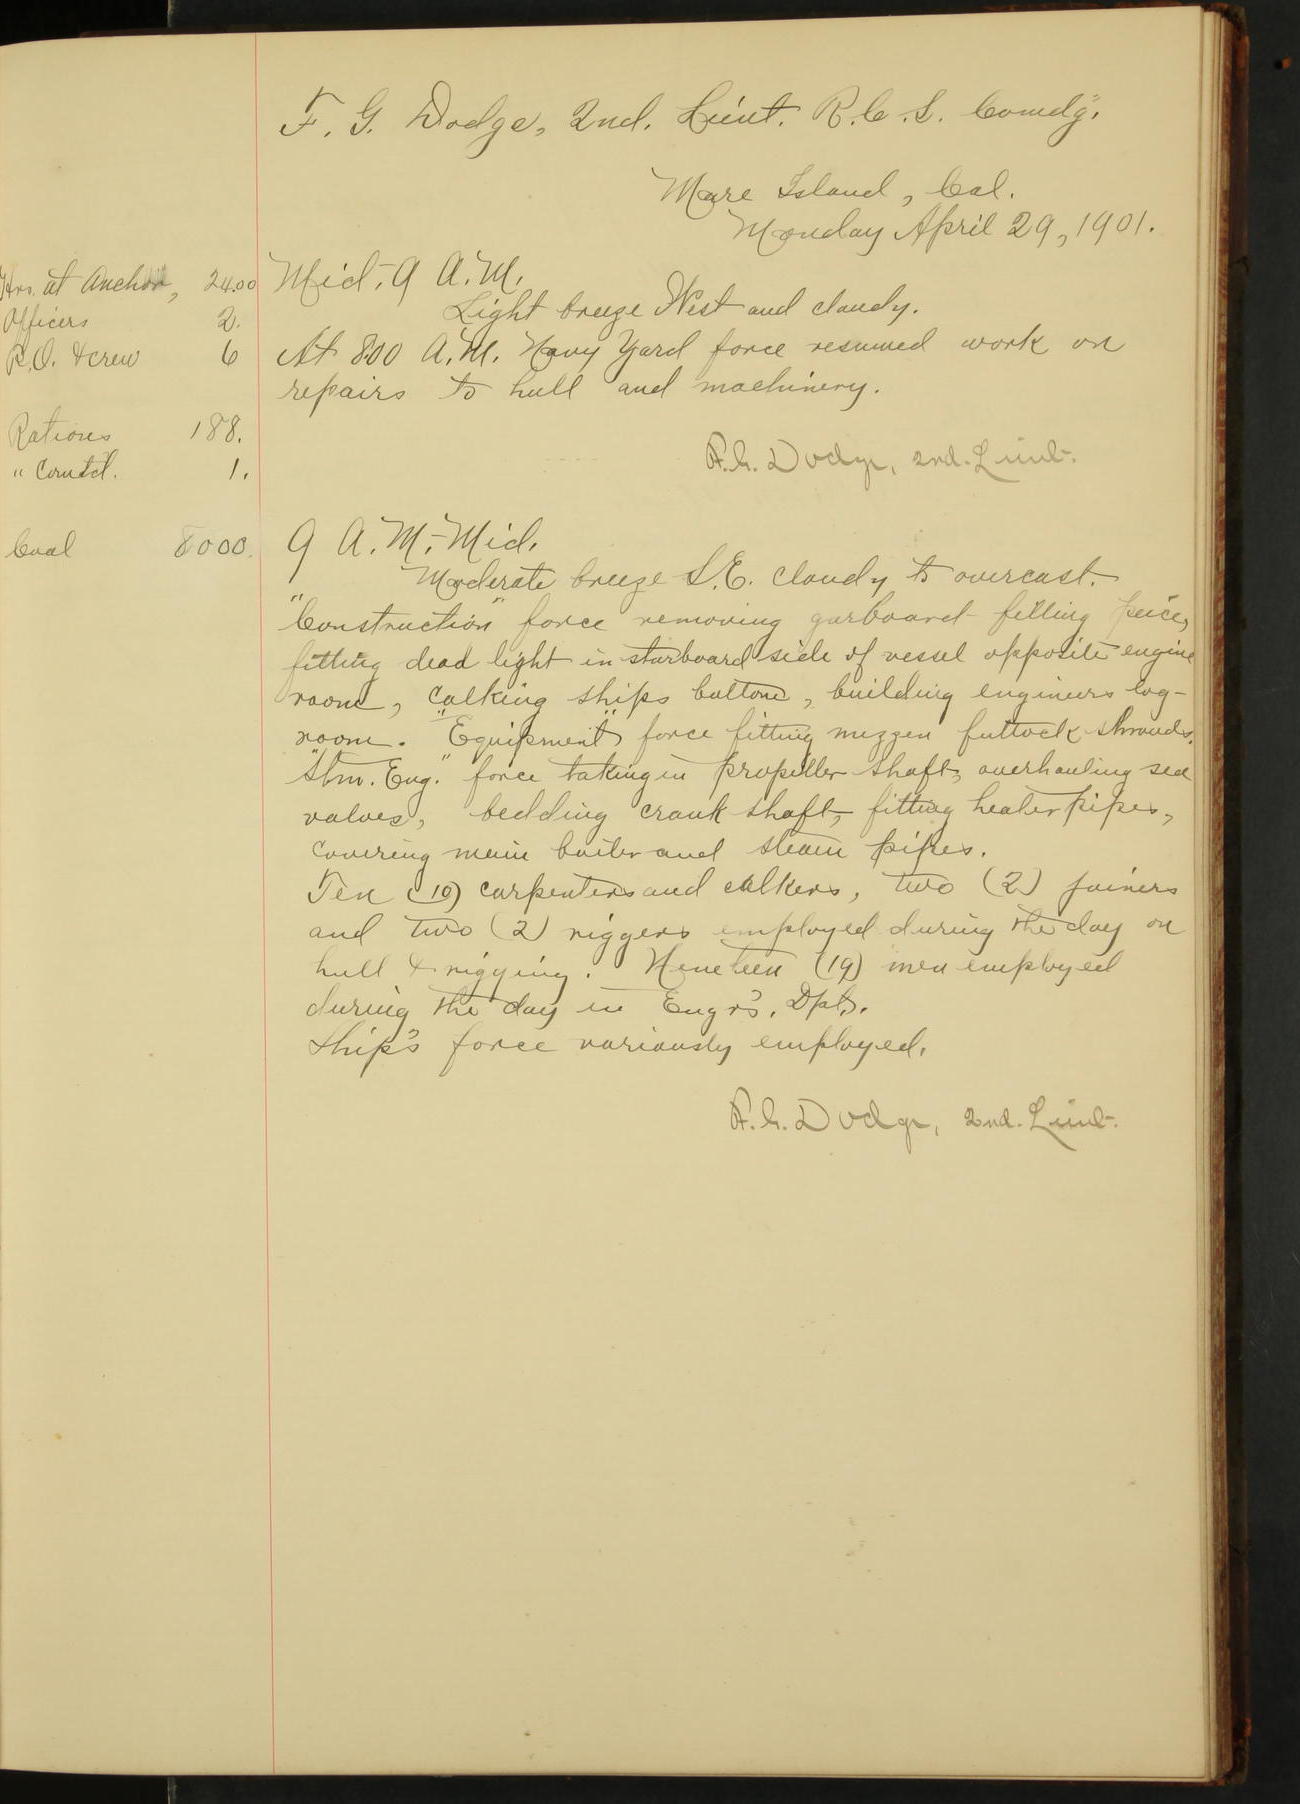 F. G. Dodge, 2nd. Lieut. R.C.S. Comdg.
Mare Island, Cal.
Monday April 29, 1901.
Hrs. at Anchor, 24.00
Officers 2.
P.O. & crew 6
Rations 188.
" Comtd. 1.
Coal 8000.
Mid.-9 A.M.
Light breeze West and cloudy.
At 8.00 A.M. Navy Yard force resumed work on
repairs to hull and machinery.
F.G. Dodge, 2nd. Lieut.
9 A.M.-Mid.
Moderate breeze S.E. cloudy to overcast.
"Construction" force removing garboard filling peice,
fitting dead light in starboard side of vessel opposite engine
room, calking ships bottom, building engineers log-
room. "Equipment" force fitting mizzen futtock shrouds.
"Stm. Eng." force taking in propeller shaft, overhauling sea
valves, bedding crank shaft, fitting heater pipes,
covering main boiler and steam pipes.
Ten (10) carpenters and calkers, two (2) joiners
and two (2) riggers employed during the day on
hull & rigging. Nineteen (19) men employed
during the day in Engr's. Dpt.
Ship's force variously employed.
F.G. Dodge, 2nd. Lieut.